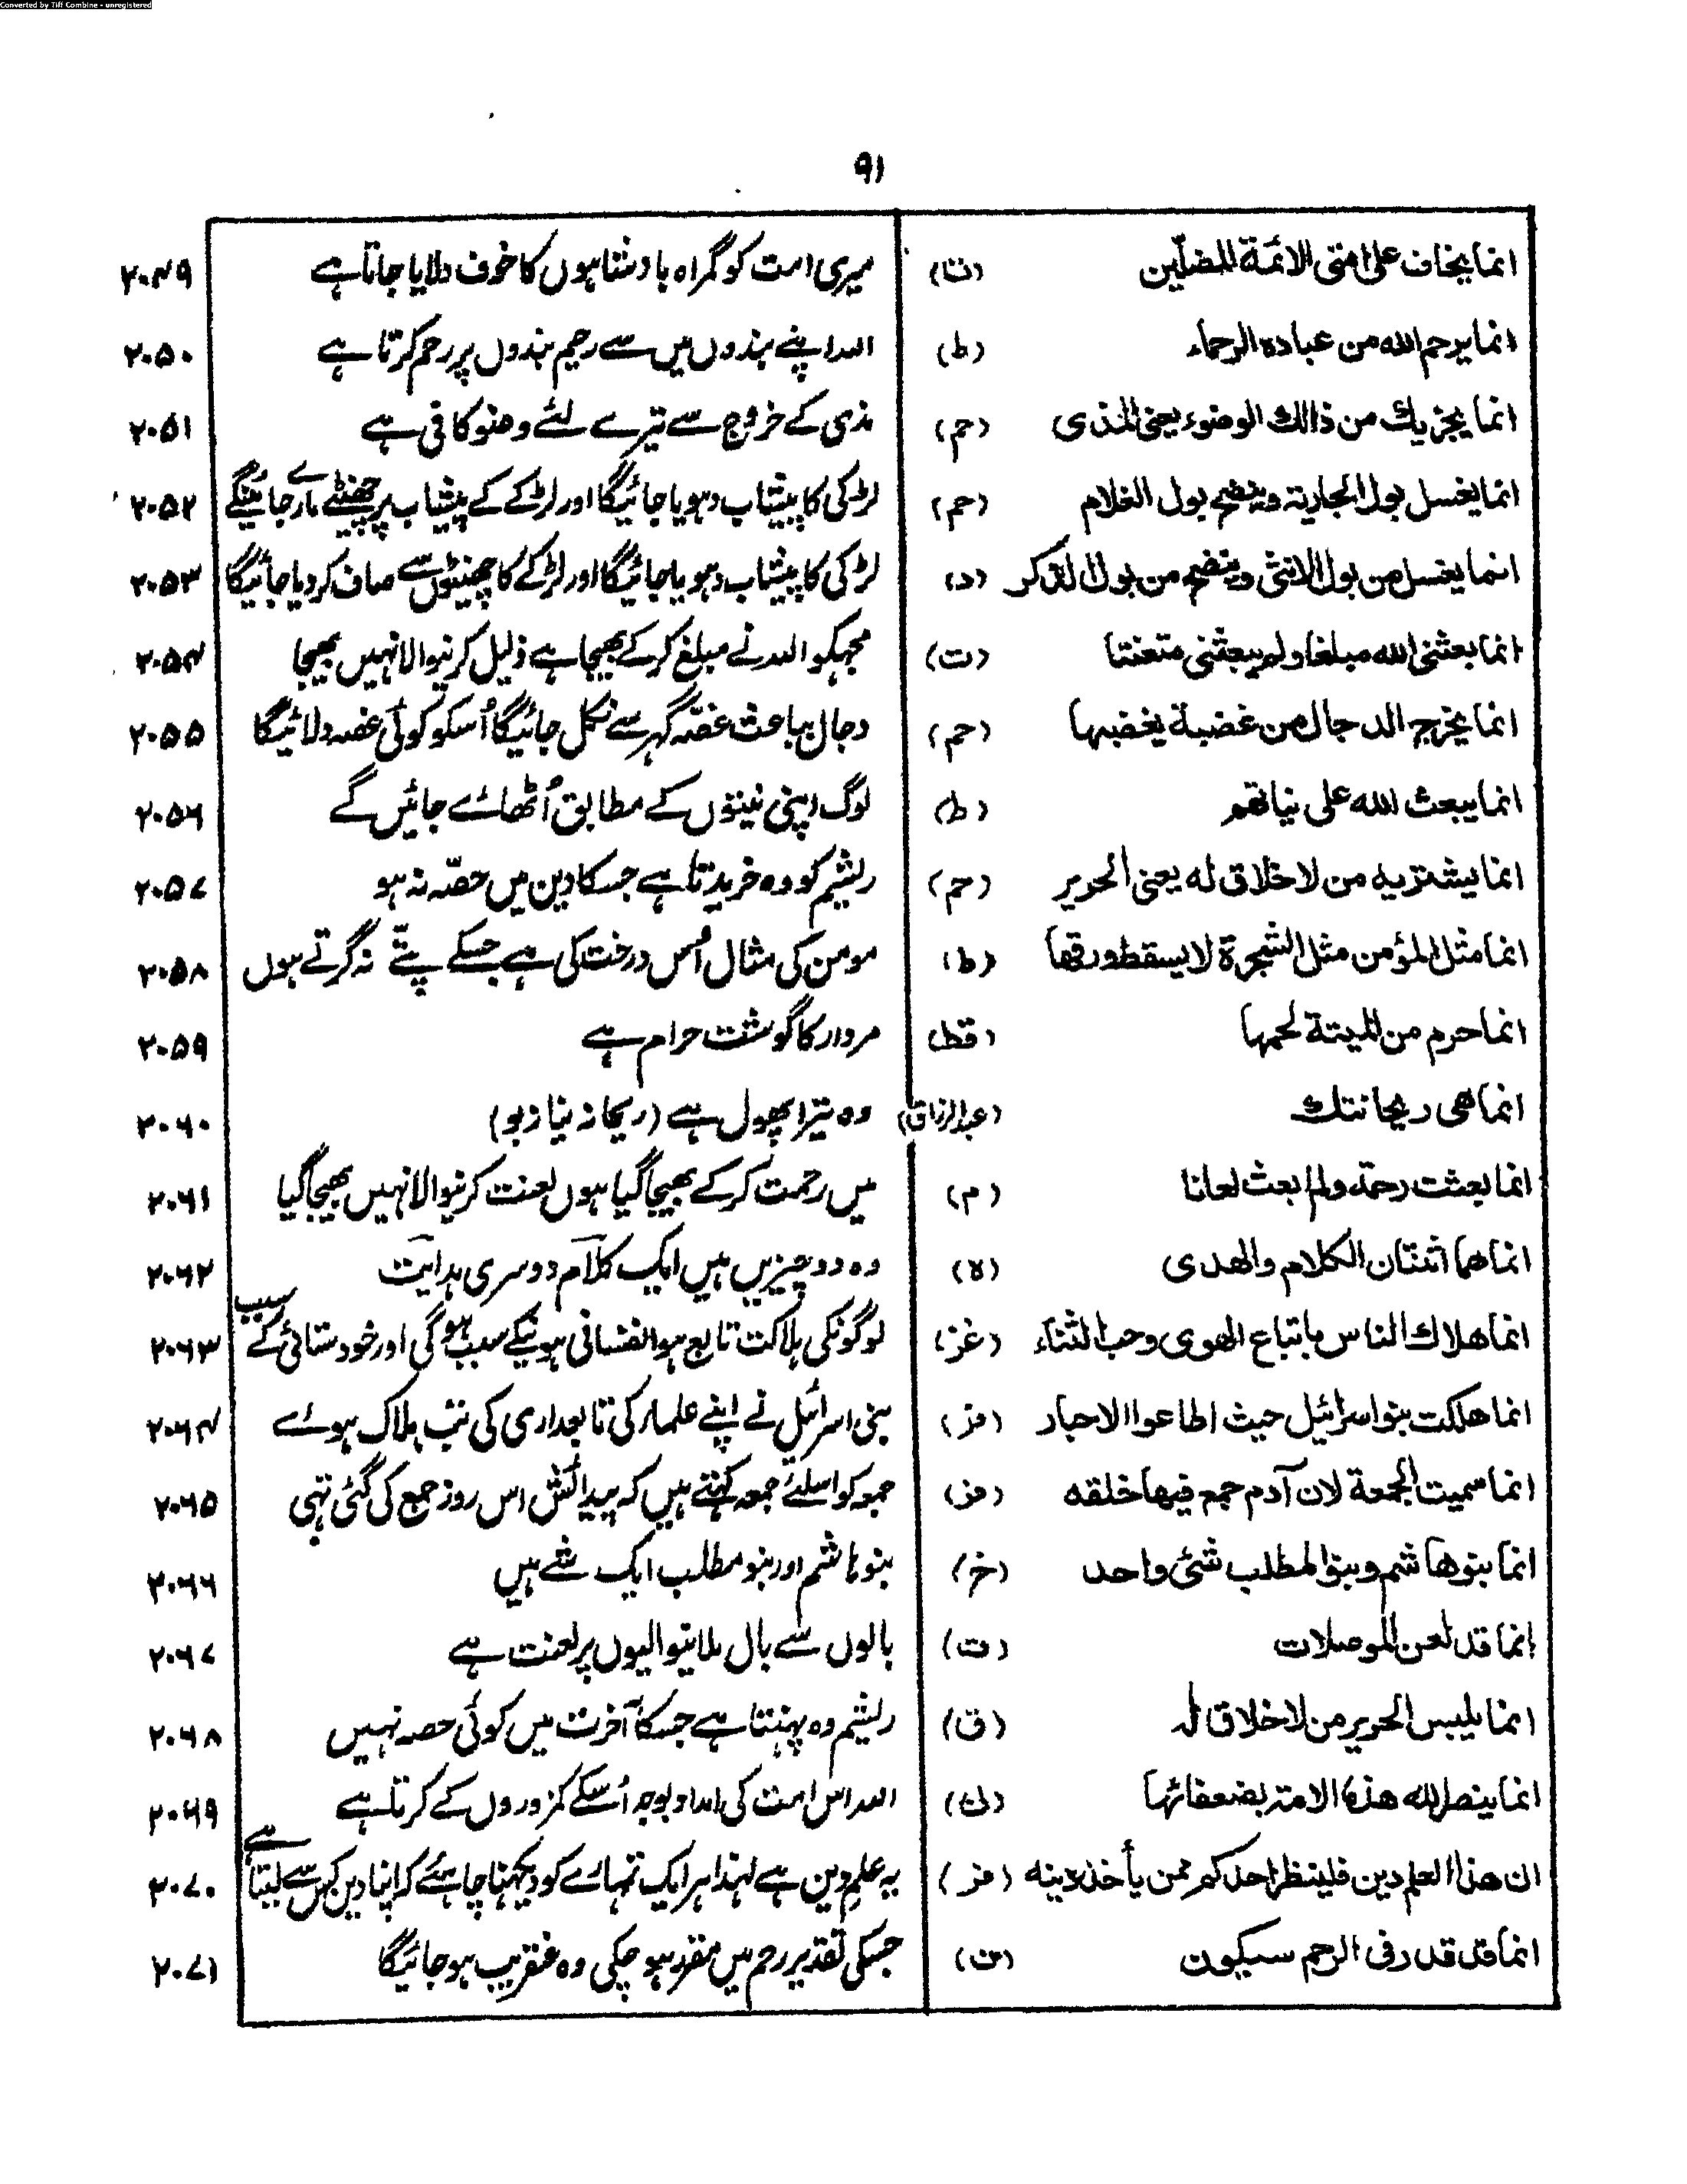 Converted by Tiff Combine - unregistered
۹۱
انما يخاف على امتى الائمة المضلّين (تا) میری امت کو گمراہ بادشاہوں کا خوف دلایا جاتا ہے ۲۰۴۹
انما يرحم الله من عباده الرحماء (ط) اللہ اپنے بندوں میں سے رحیم بندوں پر رحم کرتا ہے ۲۰۵۰
انما يجزيك من ذالك الوضوء يعنى المذى (حم) مذی کے خروج سے تیرے لئے وضو کافی ہے ۲۰۵۱
انما يغسل بول الجارية وينضح بول الغلام (حم) لڑکی کا پیشاب دہویا جائیگا اور لڑکے کے پیشاب پر چھینٹے مارے جائینگے ۲۰۵۲
انما يغسل من بول الانثى وينضح من بول الذكر (د) لڑکی کا پیشاب دہویا جائیگا اور لڑکے کا چھینٹوں سے صاف کر دیا جائیگا ۲۰۵۳
انما بعثنى الله مبلغا ولم يبعثنى متعنتا (ت) مجہکو اللہ نے مبلغ کر کے بھیجا ہے ذلیل کرنیوالا نہیں بھیجا ۲۰۵۴
انما يخرج الدجال من غضبة يغضبها (حم) دجال بباعث غصہ گہر سے نکل جائیگا اُسکو کوئی غصہ دلائیگا ۲۰۵۵
انما يبعث الله على نياتهم (ط) لوگ اپنی نیتوں کے مطابق اُٹھائے جائیں گے ۲۰۵۶
انما يشتريه من لا خلاق له يعنى الحرير (حم) ریشم کو وہ خریدتا ہے جسکا دین میں حصّہ نہ ہو ۲۰۵۷
انما مثل المؤمن مثل الشجرة لا يسقط ورقها (ط) مومن کی مثال اُس درخت کی ہے جسکے پتّے نہ گرتے ہوں ۲۰۵۸
انما حرم من الميتة لحمها (قط) مردار کا گوشت حرام ہے ۲۰۵۹
انما هى ريحانتك (عبد الرزاق) وہ تیرا پھول ہے (ریحانہ نیازبو) ۲۰۶۰
انما بعثت رحمة ولم ابعث لعانا (م) میں رحمت کر کے بھیجا گیا ہوں لعنت کرنیوالا نہیں بھیجا گیا ۲۰۶۱
انما هما اثنتان الكلام والهدى (ه) وہ دو چیزیں ہیں ایک کلام دوسری ہدایت ۲۰۶۲
انما هلاك الناس باتباع الهوى وحب الثناء (غز) لوگونکی ہلاکت تابع ہوا نفسانی ہونیکے سبب ہوگی اور خودستائی کے سبب ۲۰۶۳
انما هلكت بنو اسرائيل حيث اطاعوا الاحبار (مز) بنی اسرائیل نے اپنے علماء کی تابعداری کی تب ہلاک ہوئے ۲۰۶۴
انما سميت الجمعة لان آدم جمع فيها خلقه (مز) جمعہ کو اسلئے جمعہ کہتے ہیں کہ پیدائش اس روز جمع کی گئی تہی ۲۰۶۵
انما بنو هاشم وبنو المطلب شئى واحد (خ) بنو ہاشم اور بنو مطلب ایک شے ہیں ۲۰۶۶
انما قد لعن الموصلات (ت) بالوں سے بال ملانیوالیوں پر لعنت ہے ۲۰۶۷
انما يلبس الحرير من لا خلاق له (ق) ریشم وہ پہنتا ہے جسکا آخرت میں کوئی حصہ نہیں ۲۰۶۸
انما ينصر الله هذه الامة بضعفائها (ن) اللہ اس امت کی امداد بوجہ اُسکے کمزوروں کے کرتا ہے ۲۰۶۹
ان هذا العلم دين فلينظر احدكم ممن يأخذ دينه (مز) یہ علم دین ہے لہذا ہر ایک تمہارے کو دیکہنا چاہئے کہ اپنا دین کس سے لیتا ہے ۲۰۷۰
انما قد قدر فى الرحم سيكون (ن) جسکی تقدیر رحم میں مقرر ہو چکی وہ عنقریب ہو جائیگا ۲۰۷۱